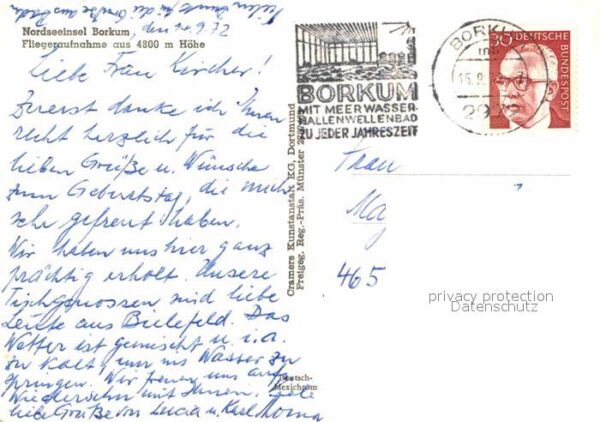 Vielen Dank für die Grüße aus Baden
Nordseeinsel Borkum, den 14.9.72
Fliegeraufnahme aus 4800 m Höhe
Liebe Frau Kircher!
Zuerst danke ich Ihnen
recht herzlich für die
lieben Grüße u. Wünsche
zum Geburtstag, die mich
sehr gefreut haben.
Wir haben uns hier ganz
prächtig erholt. Unsere
Tischgenossen sind liebe
Leute aus Bielefeld. Das
Wetter ist gemischt u. i. a.
zu kalt, um ins Wasser zu
springen. Wir freuen uns aufs
Wiedersehn mit Ihnen. Viele
liebe Grüße von Lucia u. Karl
Cramers Kunstanstalt KG, Dortmund
Freigeg. Reg.-Präs. Münster
Deutsch-
Mexichrom
BORKUM
MIT MEERWASSER-
HALLENWELLENBAD
ZU JEDER JAHRESZEIT
BORKUM
15.9.72
2972
30 DEUTSCHE
BUNDESPOST
Frau
465
privacy protection
Datenschutz